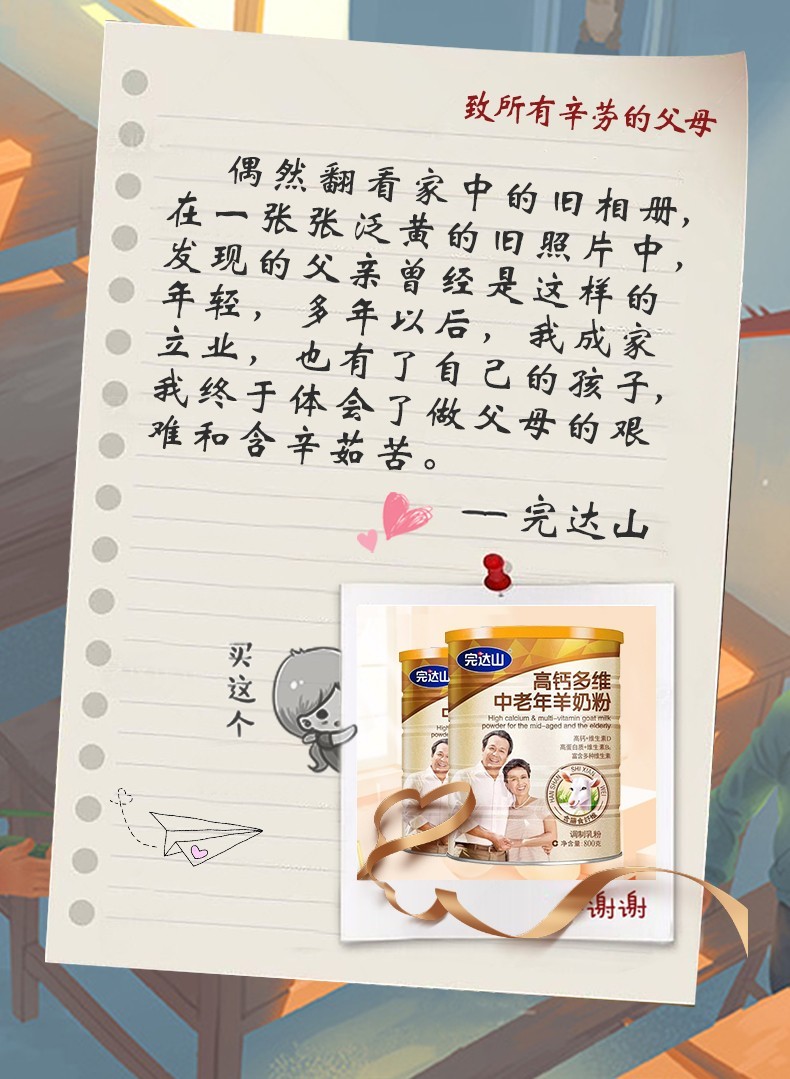 致所有辛劳的父母
偶然翻看家中的旧相册，
在一张张泛黄的旧照片中，
发现的父亲曾经是这样的
年轻，多年以后，我成家
立业，也有了自己的孩子，
我终于体会了做父母的艰
难和含辛茹苦。
——完达山
买这个
完达山
完达山
高钙多维
中老年羊奶粉
High calcium & multi-vitamin goat milk
powder for the mid-aged and the elderly
高钙+维生素D
富含多种维生素
HAN SHAN SHI XIAN WEI
含膳食纤维
调制乳粉
净含量：800克
谢谢